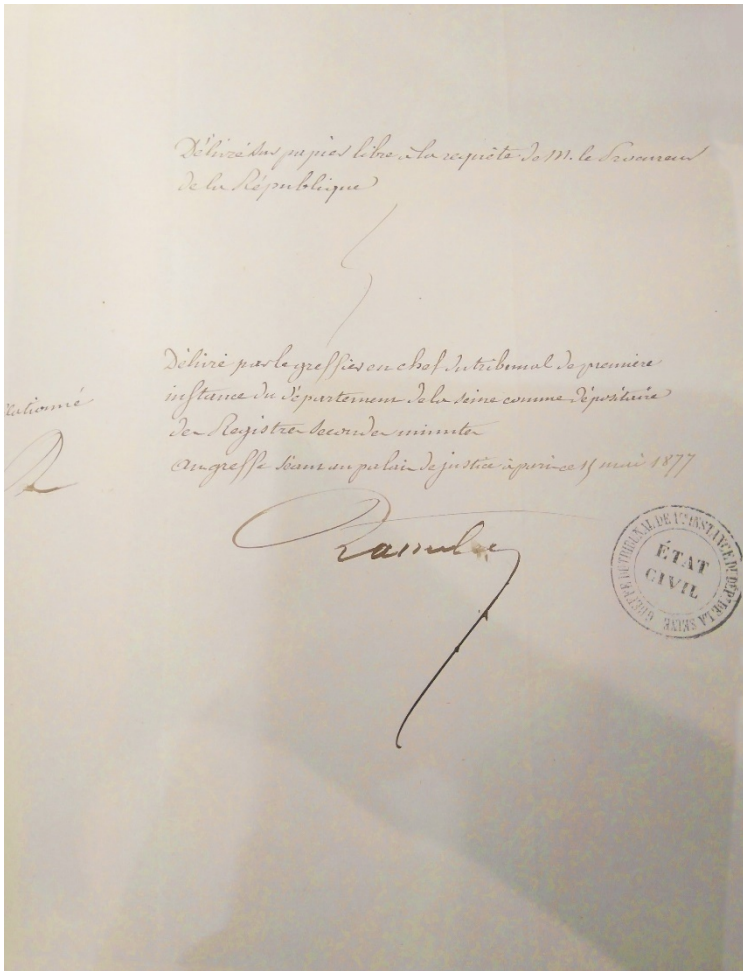 Délivré sur papier libre à la requête de M. le Procureur
de la République
Délivré par le greffier en chef du tribunal de première
instance du département de la Seine comme dépositaire
des Registres secondes minutes
Au greffe séant au palais de justice à paris ce 15 mai 1877
GREFFE DU TRIBUNAL DE 1RE INSTANCE DU DÉPT DE LA SEINE
ÉTAT
CIVIL